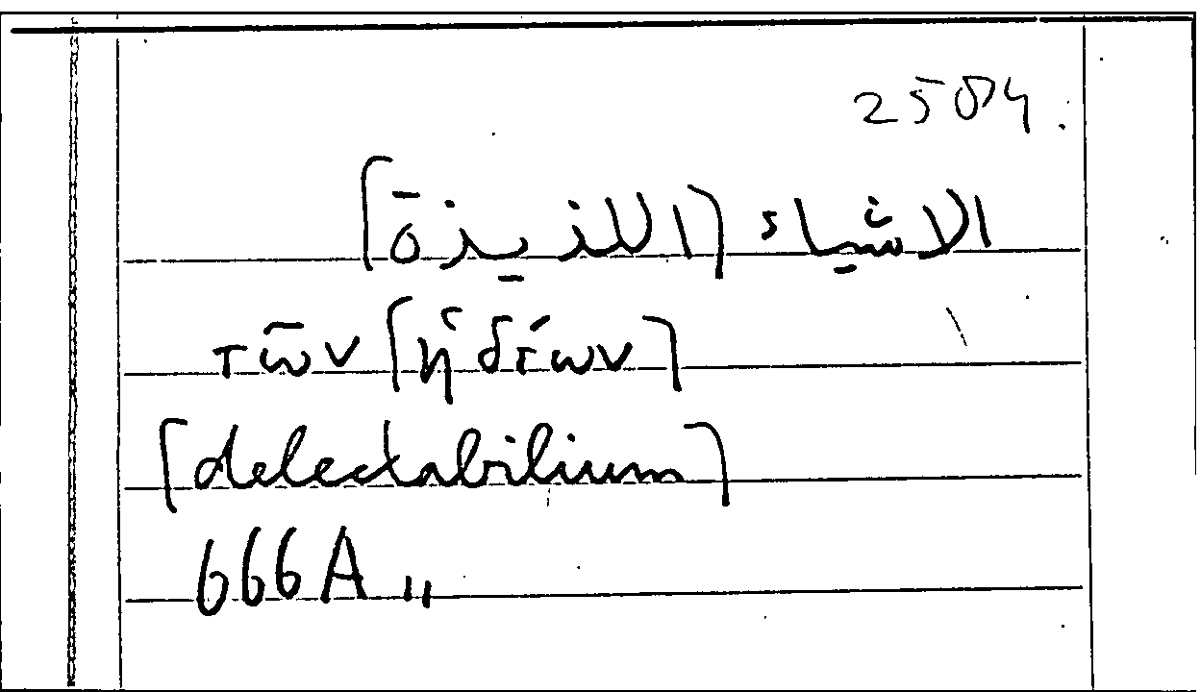 2504.
الاشياء ⌈اللذيذة⌉
τῶν ⌈ἡδέων⌉
⌈delectabilium⌉
666A „